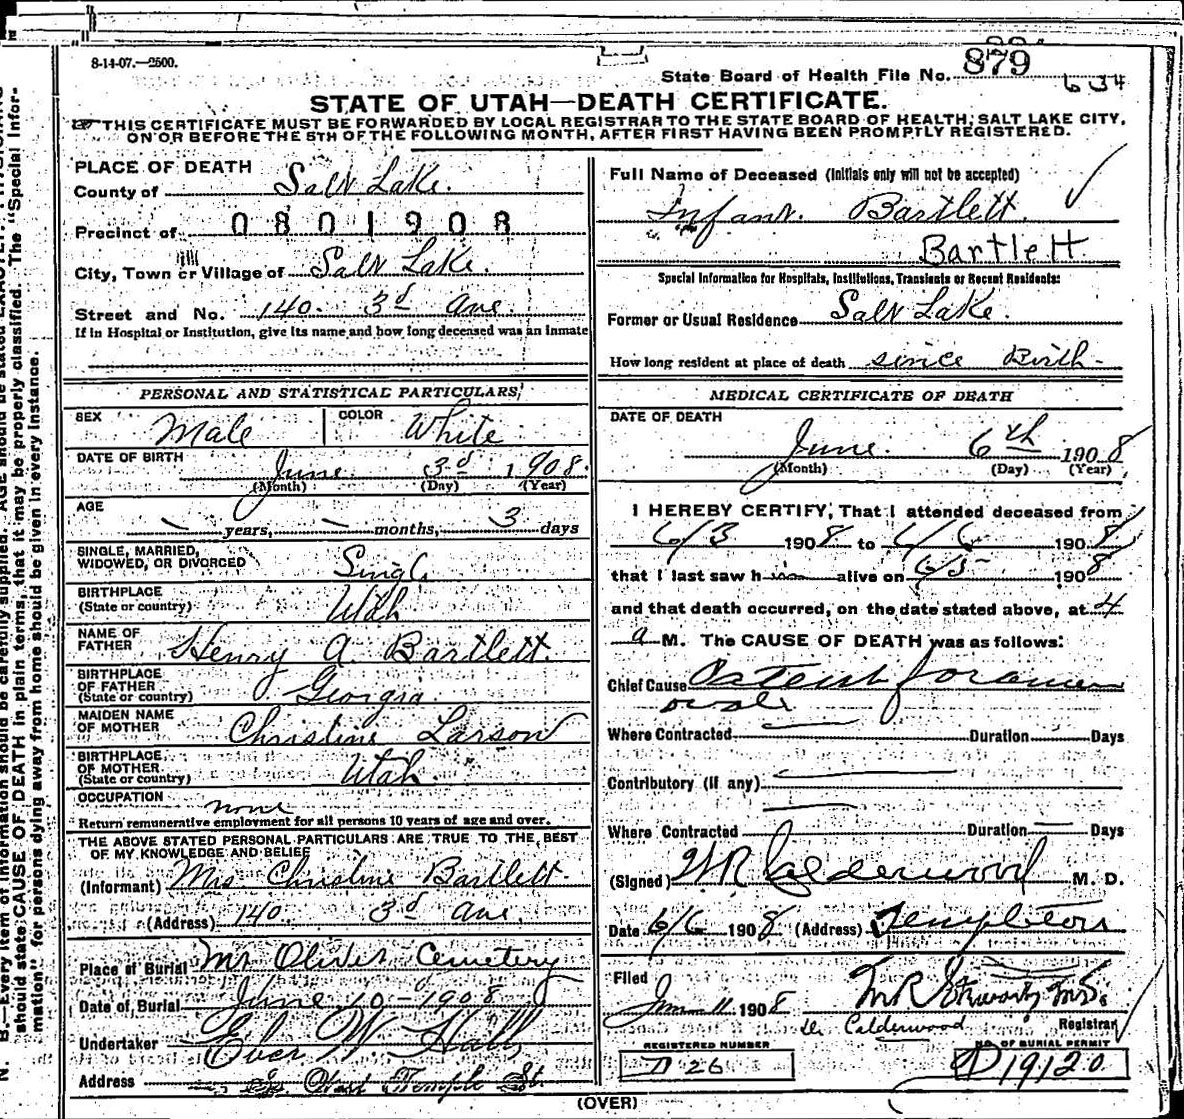 8-14-07.—2500.
State Board of Health File No. 879
634
STATE OF UTAH—DEATH CERTIFICATE.
THIS CERTIFICATE MUST BE FORWARDED BY LOCAL REGISTRAR TO THE STATE BOARD OF HEALTH, SALT LAKE CITY,
ON OR BEFORE THE 5TH OF THE FOLLOWING MONTH, AFTER FIRST HAVING BEEN PROMPTLY REGISTERED.
PLACE OF DEATH
County of Salt Lake.
Precinct of 0801908
City, Town or Village of Salt Lake.
Street and No. 140. 3d Ave.
If in Hospital or Institution, give its name and how long deceased was an inmate
PERSONAL AND STATISTICAL PARTICULARS
SEX Male COLOR White
DATE OF BIRTH June 3d 1908.
(Month) (Day) (Year)
AGE
— years, — months, 3 days
SINGLE, MARRIED,
WIDOWED, OR DIVORCED Single
BIRTHPLACE
(State or country) Utah
NAME OF
FATHER Henry A. Bartlett.
BIRTHPLACE
OF FATHER
(State or country) Georgia
MAIDEN NAME
OF MOTHER Christine Larson
BIRTHPLACE
OF MOTHER
(State or country) Utah.
OCCUPATION none
Return remunerative employment for all persons 10 years of age and over.
THE ABOVE STATED PERSONAL PARTICULARS ARE TRUE TO THE BEST
OF MY KNOWLEDGE AND BELIEF
(Informant) Mrs. Christine Bartlett
(Address) 140. 3d Ave.
Place of Burial Mt Olivet Cemetery
Date of Burial June 10-1908
Undertaker Eber W. Hall
Address Temple St.
Full Name of Deceased (Initials only will not be accepted)
Infant. Bartlett.
Bartlett
Special Information for Hospitals, Institutions, Transients or Recent Residents:
Former or Usual Residence Salt Lake.
How long resident at place of death since Birth-
MEDICAL CERTIFICATE OF DEATH
DATE OF DEATH
June. 6th 1908
(Month) (Day) (Year)
I HEREBY CERTIFY, That I attended deceased from
6/3 1908 to 6/6 1908,
that I last saw him alive on 6/5 1908
and that death occurred, on the date stated above, at 4
a M. The CAUSE OF DEATH was as follows:
Chief Cause Patent foramen
ovale
Where Contracted Duration Days
Contributory (if any)
Where Contracted Duration Days
(Signed) W R Calderwood M. D.
Date 6/6 1908 (Address) Templeton
Filed
June 11 1908
Dr. Calderwood Registrar
REGISTERED NUMBER
D 26
NO. OF BURIAL PERMIT
D 19120
(OVER)
N. B.—Every item of information should be carefully supplied. AGE should be stated EXACTLY.
should state CAUSE OF DEATH in plain terms, that it may be properly classified. The "Special Infor-
mation" for persons dying away from home should be given in every instance.